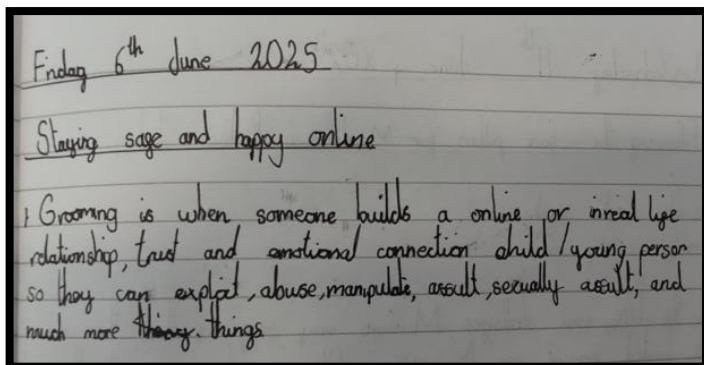 Friday 6th June 2025
Staying sage and happy online
1 Grooming is when someone builds a online or inreal lige
relationship, trust and emotional connection child / young person
so they can exploit, abuse, manipulate, assult, sexually assult, and
much more things